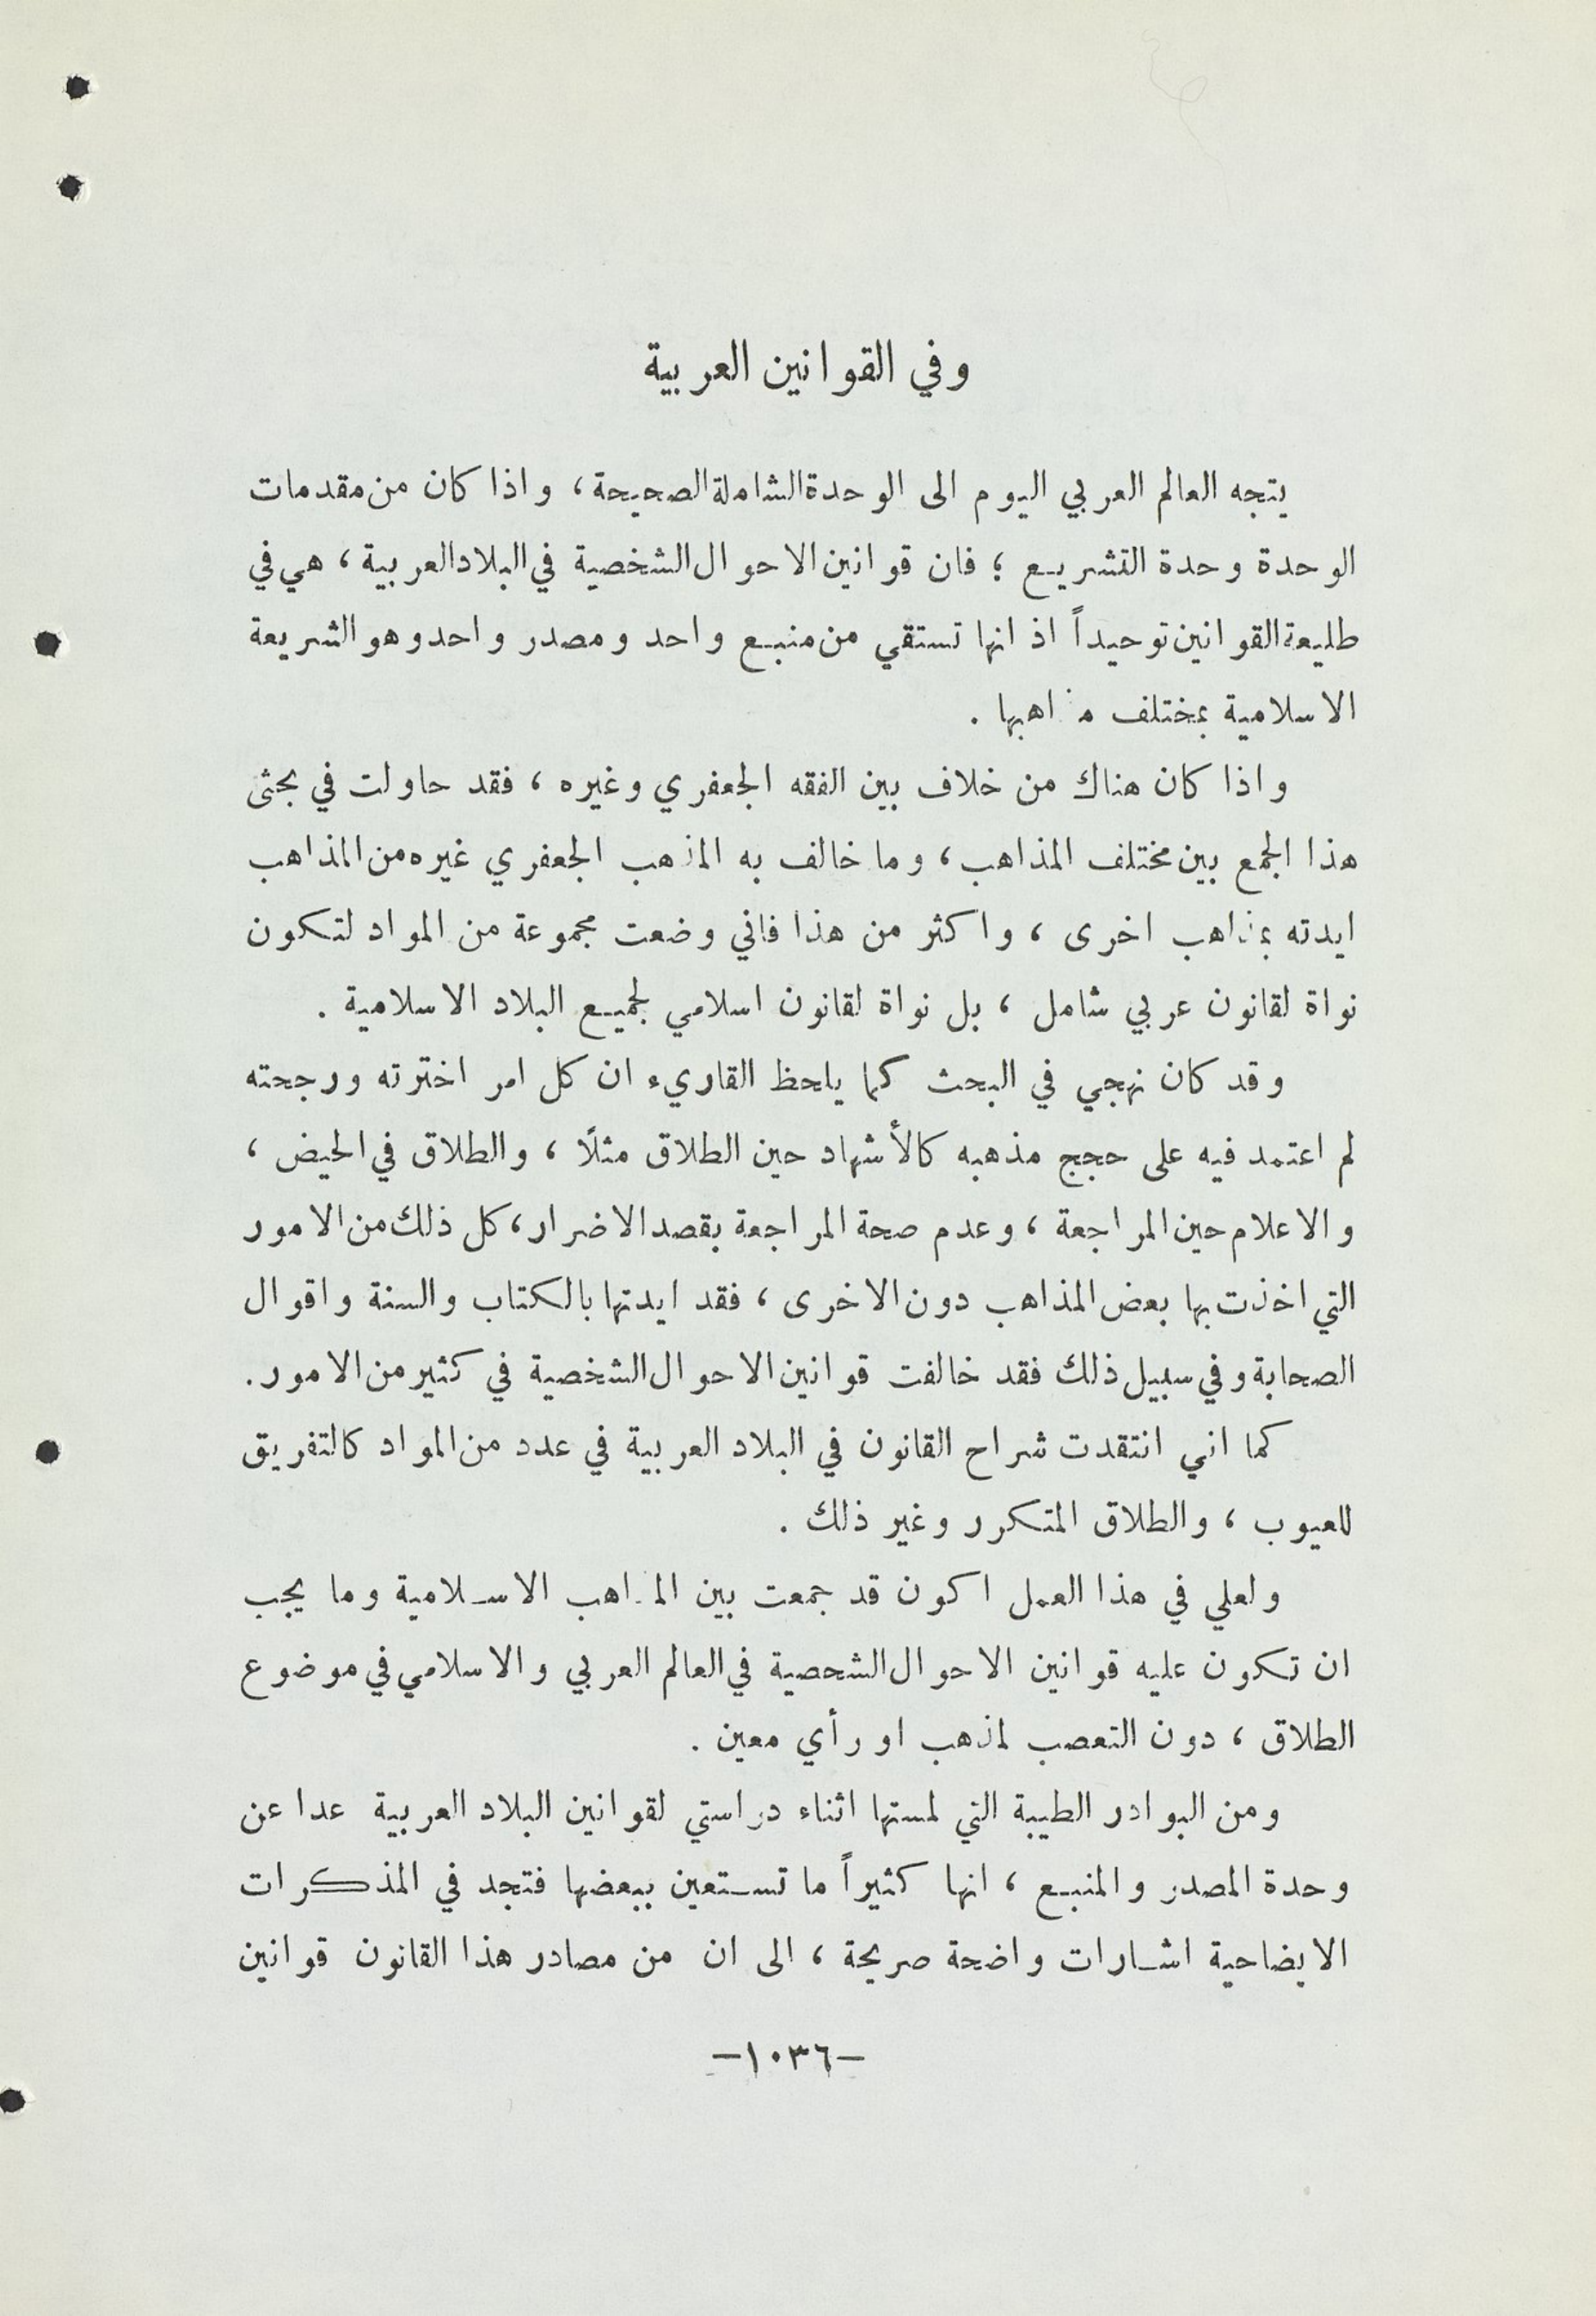 وفي القوانين العربية
يتجه العالم العربي اليوم الى الوحدة الشاملة الصحيحة، واذا كان من مقدمات
الوحدة وحدة التشريع ؛ فان قوانين الاحوال الشخصية في البلاد العربية ، هي في
طليعة القوانين توحيداً اذ انها تستقي من منبع واحد ومصدر واحد وهو الشريعة
الاسلامية بمختلف مذاهبها .
واذا كان هناك من خلاف بين الفقه الجعفري وغيره ، فقد حاولت في بحثي
هذا الجمع بين مختلف المذاهب ، وما خالف به المذهب الجعفري غيره من المذاهب
ايدته بمذاهب اخرى ، واكثر من هذا فاني وضعت مجموعة من المواد لتكون
نواة لقانون عربي شامل ، بل نواة لقانون اسلامي لجميع البلاد الاسلامية .
وقد كان نهجي في البحث كما يلحظ القاريء ان كل امر اخترته ورجحته
لم اعتمد فيه على حجج مذهبه كالأشهاد حين الطلاق مثلًا ، والطلاق في الحيض ،
والاعلام حين المراجعة ، وعدم صحة المراجعة بقصد الاضرار، كل ذلك من الامور
التي اخذت بها بعض المذاهب دون الاخرى ، فقد ايدتها بالكتاب والسنة واقوال
الصحابة وفي سبيل ذلك فقد خالفت قوانين الاحوال الشخصية في كثير من الامور.
كما اني انتقدت شراح القانون في البلاد العربية في عدد من المواد كالتفريق
للعيوب ، والطلاق المتكرر وغير ذلك .
ولعلي في هذا العمل اكون قد جمعت بين المذاهب الاسلامية وما يجب
ان تكون عليه قوانين الاحوال الشحصية في العالم العربي والاسلامي في موضوع
الطلاق ، دون التعصب لمذهب او رأي معين .
ومن البوادر الطيبة التي لمستها اثناء دراستي لقوانين البلاد العربية عدا عن
وحدة المصدر والمنبع ، انها كثيراً ما تستعين ببعضها فتجد في المذكرات
الايضاحية اشارات واضحة صريحة ، الى ان من مصادر هذا القانون قوانين
—١٠٣٦—